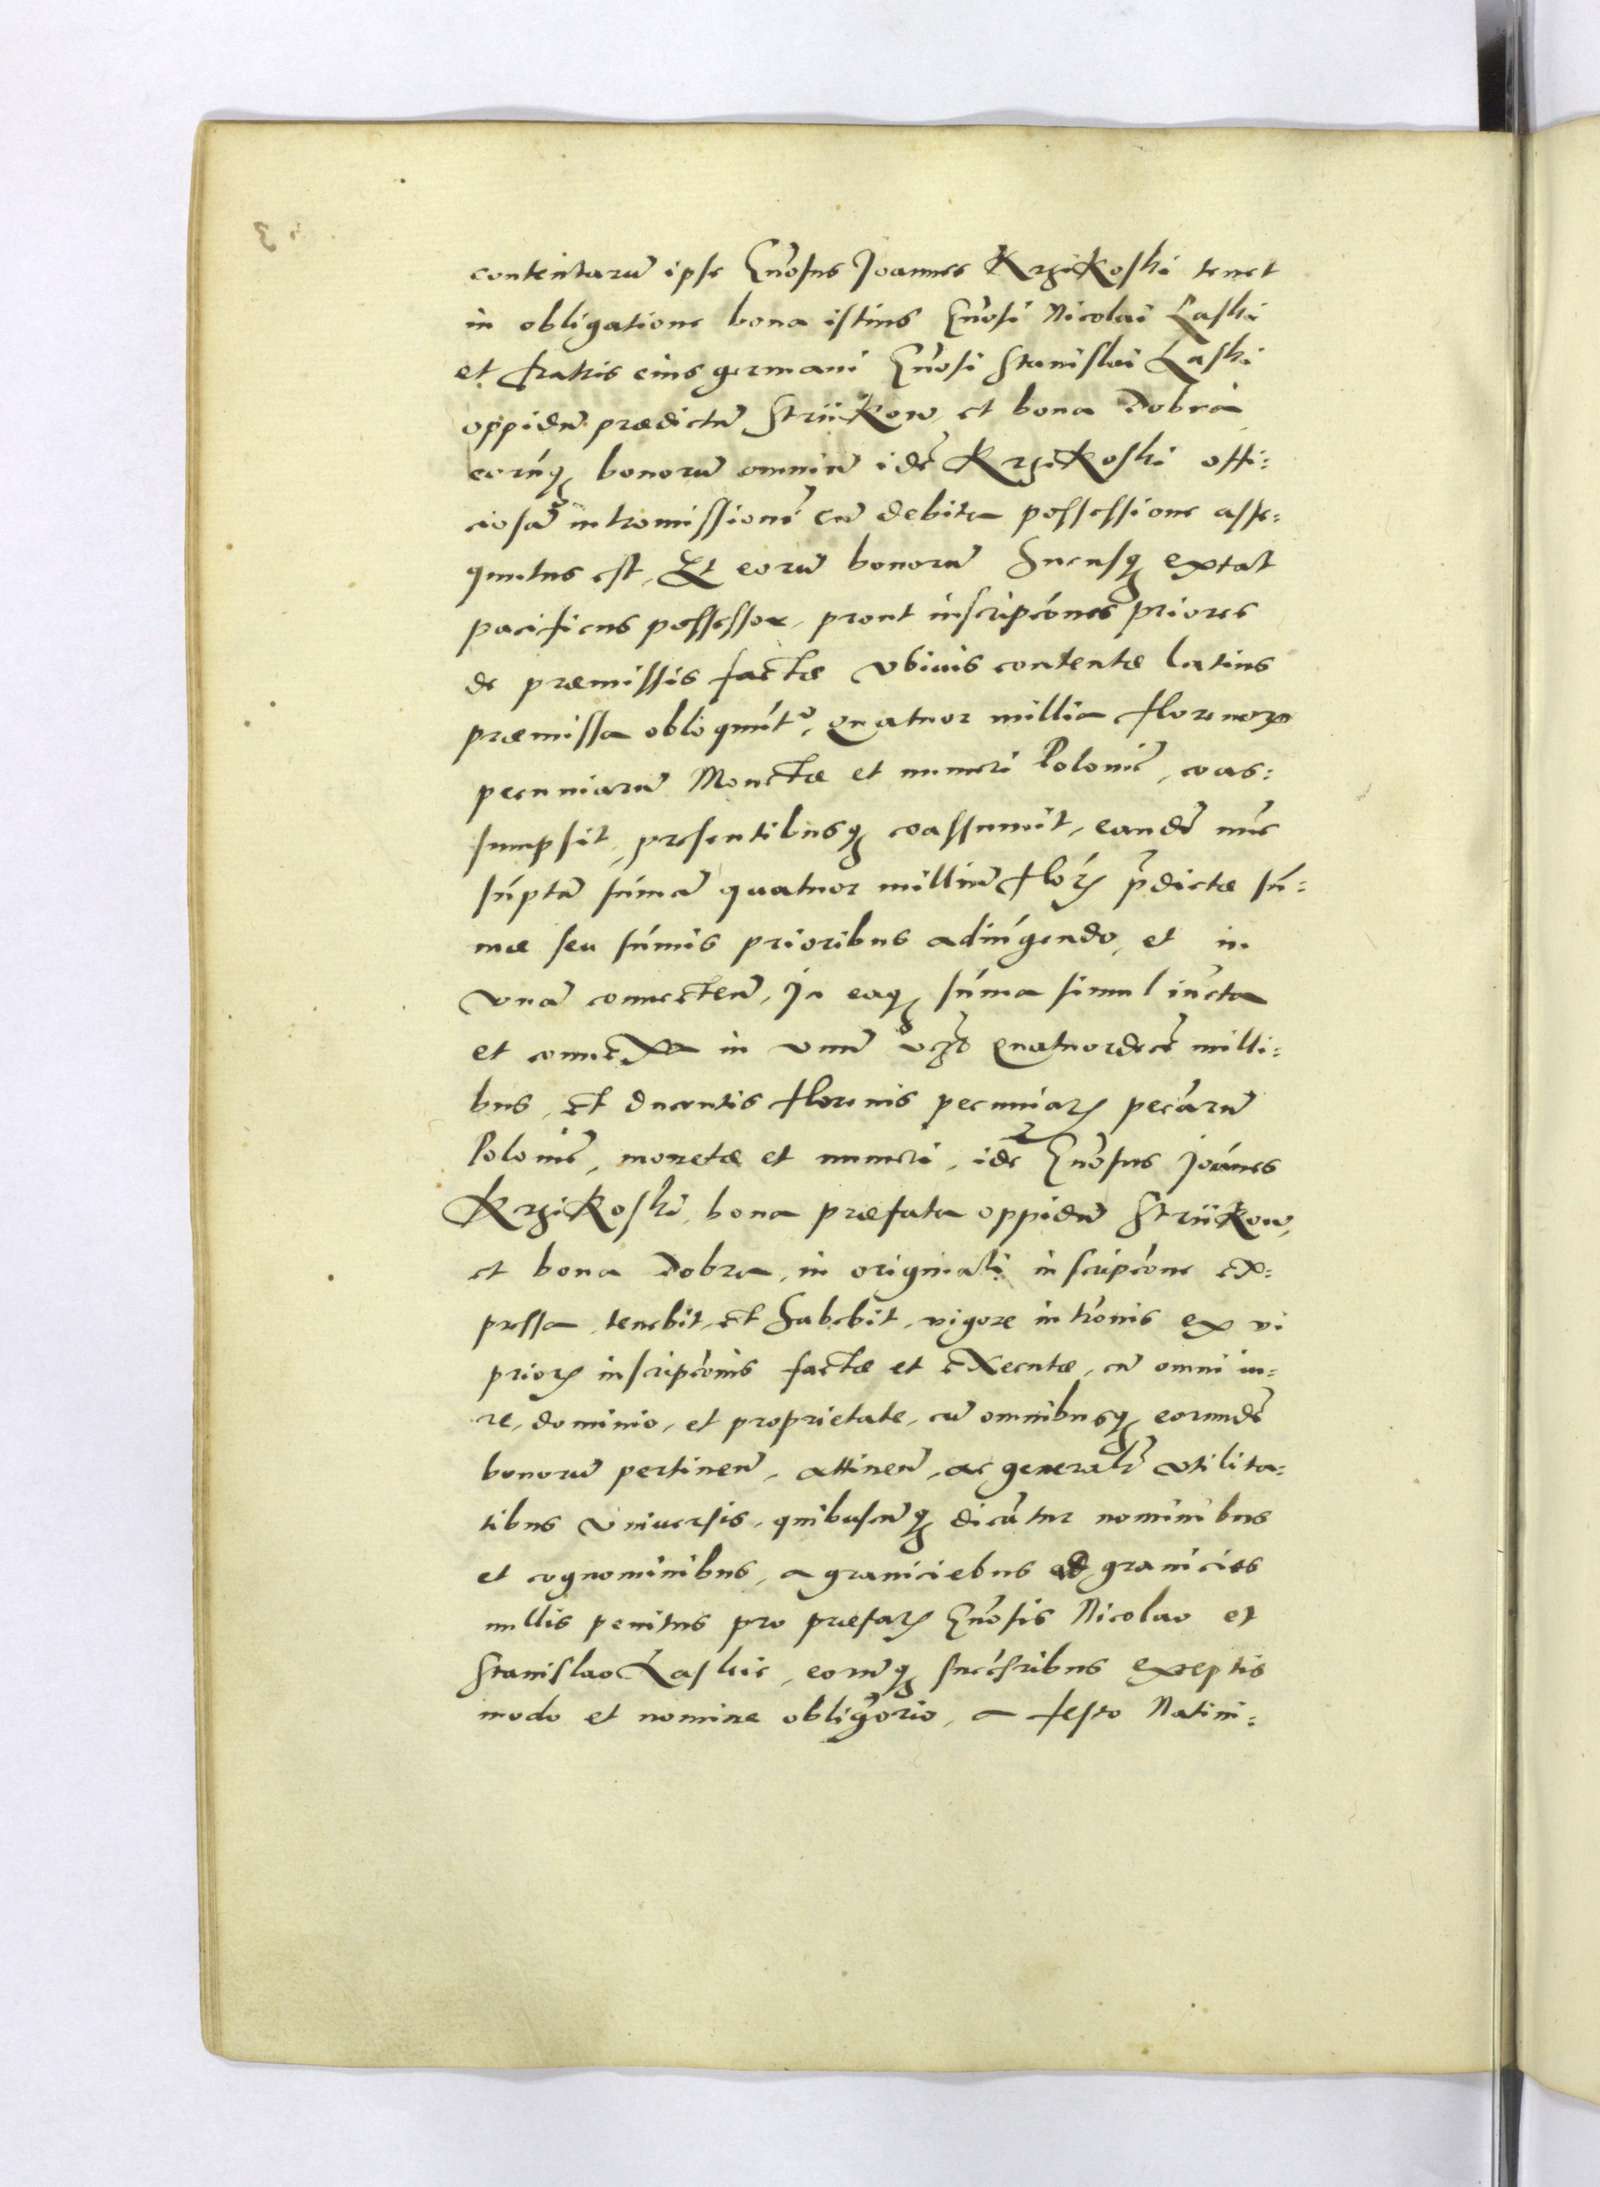 contentarũ ipse Gñosus Joannes Krzikoski tenet
in obligatione bona istius Gñosi Nicolai Laski
et fratris eius germani Gñosi Stanislai Laski
oppidũ prædictũ Striikow, et bona Dobra
eorũq₃ bonorũ omniũ idẽ Krzikoski offi:
ciosã intromissionẽ cũ debita possessione asse:
quutus est, Et eorũ bonorũ hucusq₃ extat
pacificus possessor, prout inscripc̃ones priores
de præmissis factæ ubiuis contentæ latius
præmissa obloquũt͛, quatuor millia florenoꝝ
pecuniarũ Monetæ et numeri Poloniẽ, coas:
sumpsit, presentibusq₃ coassumit, eandẽ nũc
sũptã sũmã quatuor milliũ floꝝ p̃dictæ sũ:
mæ seu sũmis prioribus adiũgendo, et in
unã connecteñ, In eaq₃ sũma simul iũcta
et connexa in unũ vꝫ quatuordecẽ milli:
bus, et ducentis florenis pecuniaꝝ pecãrũ
Poloniẽ, monetæ et numeri, idẽ Gñosus Joãnes
Krzikoski, bona præfata oppidũ Striikow,
et bona Dobra, in originali inscripc̃one ex:
pressa, tenebit, et habebit, vigore intrõnis ex vi
prioꝝ inscripc̃onis factæ et executæ, cũ omni iu:
re, dominio, et proprietate, cũ omnibusq₃ eorundẽ
bonorũ pertineñ, attineñ, ac generalr̃ utilita:
tibus universis, quibuscũq₃ dicãtur nominibus
et cognominibus, a graniciebus ad granicies
nullis penitus pro præfaꝝ Gñosis Nicolao et
Stanislao Laskie, eorũq₃ succ̃ribus exeptis
modo et nomine oblig̃orio, a festo Natiui: